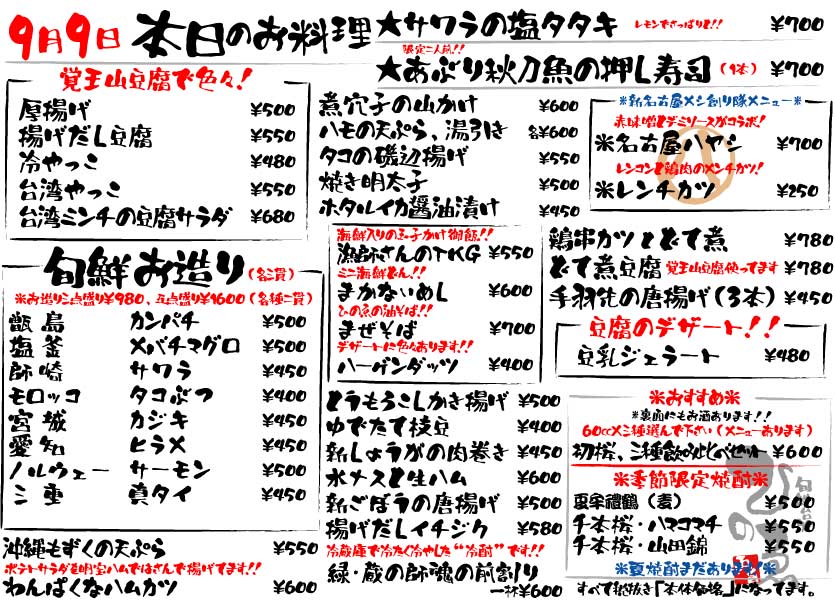 9月9日 本日のお料理
★サワラの塩タタキ レモンでさっぱりと!! ¥700
限定二人前!!
★あぶり秋刀魚の押し寿司(1本) ¥700
覚王山豆腐で色々!
厚揚げ ¥500
揚げだし豆腐 ¥550
冷やっこ ¥480
台湾やっこ ¥550
台湾ミンチの豆腐サラダ ¥680
煮穴子の山かけ ¥600
ハモの天ぷら、湯引き 各¥600
タコの磯辺揚げ ¥550
焼き明太子 ¥500
ホタルイカ醤油漬け ¥450
※新名古屋メシ創り隊メニュー※
赤味噌とデミソースがコラボ!
※名古屋ハヤシ ¥700
レンコンと鶏肉のメンチカツ!
※レンチカツ ¥250
旬鮮お造り(各二貫)
※お造り三点盛り¥980、五点盛り¥1600(各種二貫)
甑島 カンパチ ¥500
塩釜 メバチマグロ ¥500
師崎 サワラ ¥450
モロッコ タコぶつ ¥400
宮城 カジキ ¥450
愛知 ヒラメ ¥450
ノルウェー サーモン ¥500
三重 真タイ ¥450
沖縄もずくの天ぷら ¥550
ポテトサラダを明宝ハムではさんで揚げてます!!
わんぱくなハムカツ ¥600
海鮮入りの玉子かけ御飯!!
漁師さんのTKG ¥550
ミニ海鮮どん!!
まかないめし ¥600
ひの魚の油そば!!
まぜそば ¥700
デザートに色々あります!!
ハーゲンダッツ ¥400
とうもろこしかき揚げ ¥500
ゆでたて枝豆 ¥400
新しょうがの肉巻き ¥450
水ナスと生ハム ¥600
新ごぼうの唐揚げ ¥500
揚げだしイチジク ¥580
冷蔵庫で冷たく冷やした“冷酎”です!!
緑・蔵の師魂の前割り
一杯¥600
鶏串カツとどて煮 ¥780
どて煮豆腐 覚王山豆腐使ってます ¥780
手羽先の唐揚げ(3本) ¥450
豆腐のデザート!!
豆乳ジェラート ¥480
※おすすめ※
※裏面にもお酒あります!!
60cc×三種選んで下さい(メニューあります)
初桜、三種飲み比べセット ¥600
※季節限定焼酎※
夏傘禮鶴(麦) ¥500
千本桜・ハマコマチ ¥550
千本桜・山田錦 ¥550
※夏焼酎まだあります!※
すべて税抜き「本体価格」になってます。